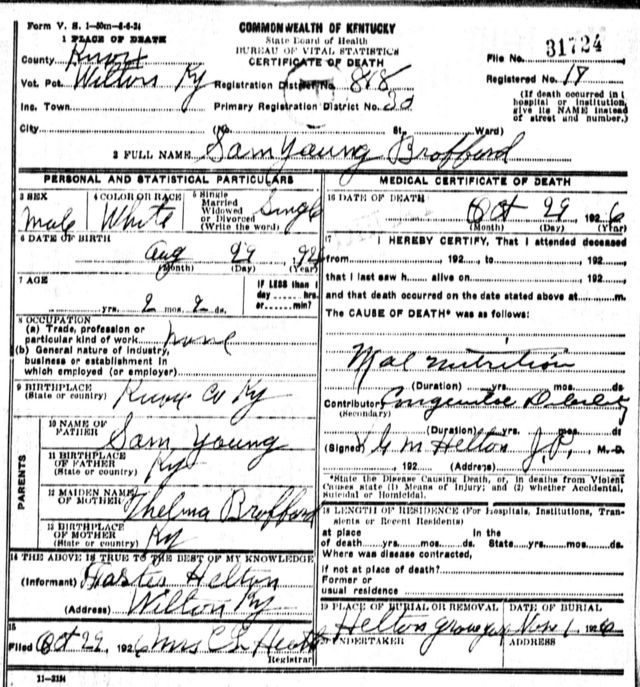 Form V. S. 1-50m-8-6-24
COMMONWEALTH OF KENTUCKY
State Board of Health
BUREAU OF VITAL STATISTICS
CERTIFICATE OF DEATH
1 PLACE OF DEATH
County Knox
File No. 31724
Vot. Pct. Wilton Ky Registration District No. 818 Registered No. 18
Inc. Town Primary Registration District No.
(If death occurred in a hospital or institution, give its NAME instead of street and number.)
City (No. St. Ward)
2 FULL NAME Sam Young Brofford
PERSONAL AND STATISTICAL PARTICULARS
3 SEX Male
4 COLOR OR RACE White
5 Single Married Widowed or Divorced (Write the word) Single
6 DATE OF BIRTH
Aug 29, 192
(Month) (Day) (Year)
7 AGE
yrs. 2 mos. 2 ds.
IF LESS than 1 day hrs. or min?
8 OCCUPATION
(a) Trade, profession or particular kind of work none
(b) General nature of industry, business or establishment in which employed (or employer)
9 BIRTHPLACE
(State or country) Knox Co Ky
PARENTS
10 NAME OF FATHER Sam Young
11 BIRTHPLACE OF FATHER
(State or country) Ky
12 MAIDEN NAME OF MOTHER Thelma Brofford
13 BIRTHPLACE OF MOTHER
(State or country) Ky
14 THE ABOVE IS TRUE TO THE BEST OF MY KNOWLEDGE
(Informant) Helton
(Address) Wilton Ky
15
Filed Oct 29, 1926 Mrs
Registrar
11-3184
MEDICAL CERTIFICATE OF DEATH
16 DATE OF DEATH Oct 29 1926
(Month) (Day) (Year)
17 I HEREBY CERTIFY, That I attended deceased
from , 192 , to , 192 ,
that I last saw h alive on , 192 ,
and that death occurred on the date stated above at m.
The CAUSE OF DEATH* was as follows:
Mal nutrition
(Duration) yrs. mos. ds.
Contributory
(Secondary)
(Duration) yrs. mos. ds
(Signed) G M Helton J.P., M. D.
, 192 (Address)
*State the Disease Causing Death, or, in deaths from Violent Causes state (1) Means of Injury; and (2) whether Accidental, Suicidal or Homicidal.
18 LENGTH OF RESIDENCE (For Hospitals, Institutions, Transients or Recent Residents)
at place of death yrs. mos. ds. In the State yrs. mos. ds.
Where was disease contracted,
if not at place of death?
Former or
usual residence
19 PLACE OF BURIAL OR REMOVAL DATE OF BURIAL
Helton Nov 1, 1926
20 UNDERTAKER ADDRESS